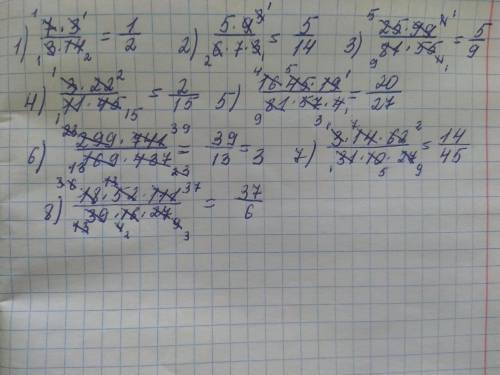 1) (7·3)/(3·14) = 1/2 2) (5·9)/(6·7·3) = 5/14 3) (25·99)/(81·55) = 5/9
4) (3·22)/(11·45) = 2/15 5) (16·45·19)/(81·57·4) = 20/27
6) (299·741)/(169·437) = 39/13 = 3 7) (3·14·62)/(31·10·27) = 14/45
8) (18·52·111)/(39·16·27) = 37/6